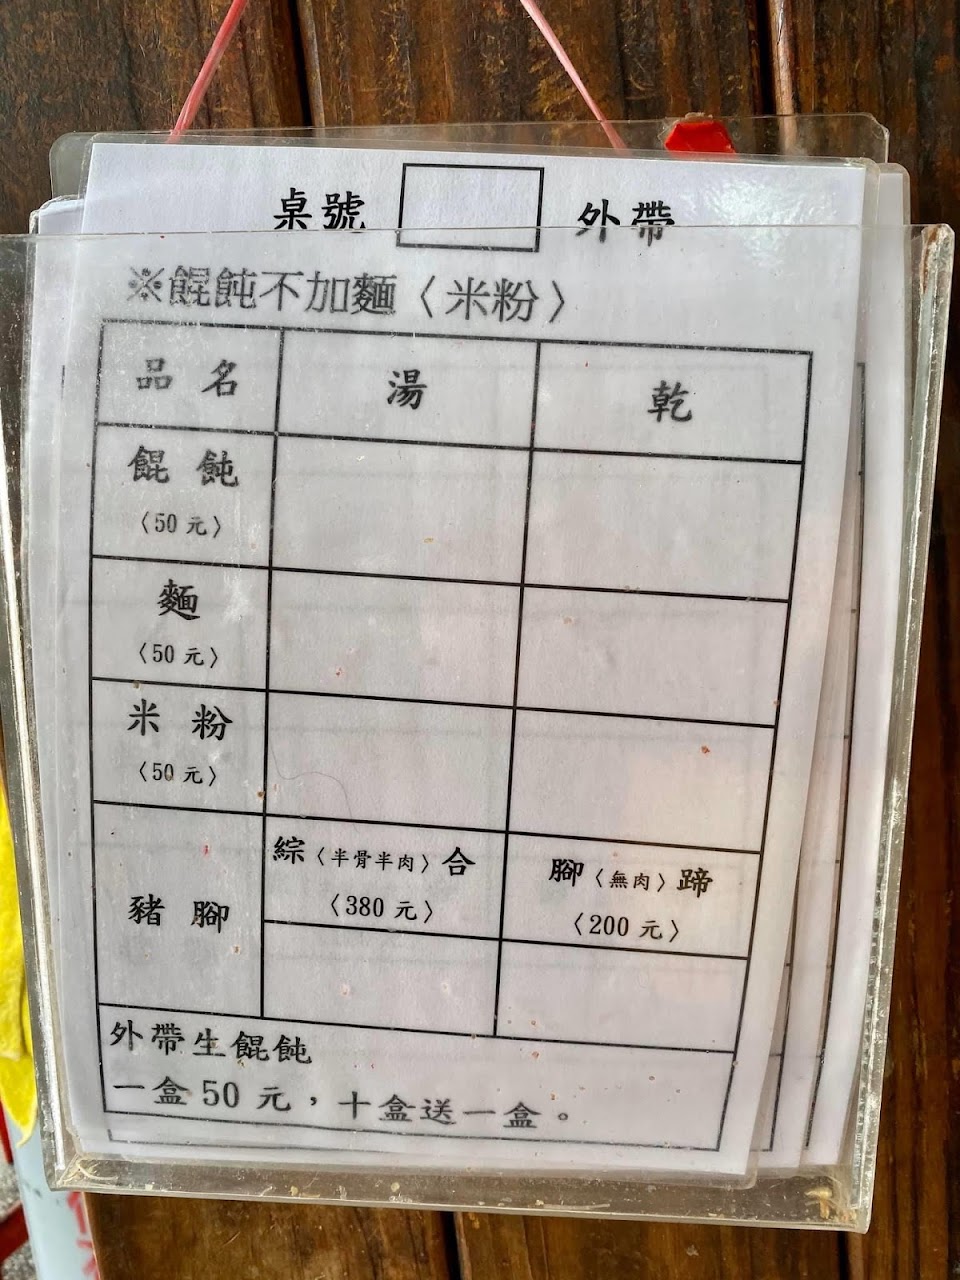 桌號 外帶
※餛飩不加麵〈米粉〉
品名 湯 乾
餛飩
〈50元〉
麵
〈50元〉
米粉
〈50元〉
豬腳
綜〈半骨半肉〉合
〈380元〉
腳〈無肉〉蹄
〈200元〉
外帶生餛飩
一盒50元，十盒送一盒。